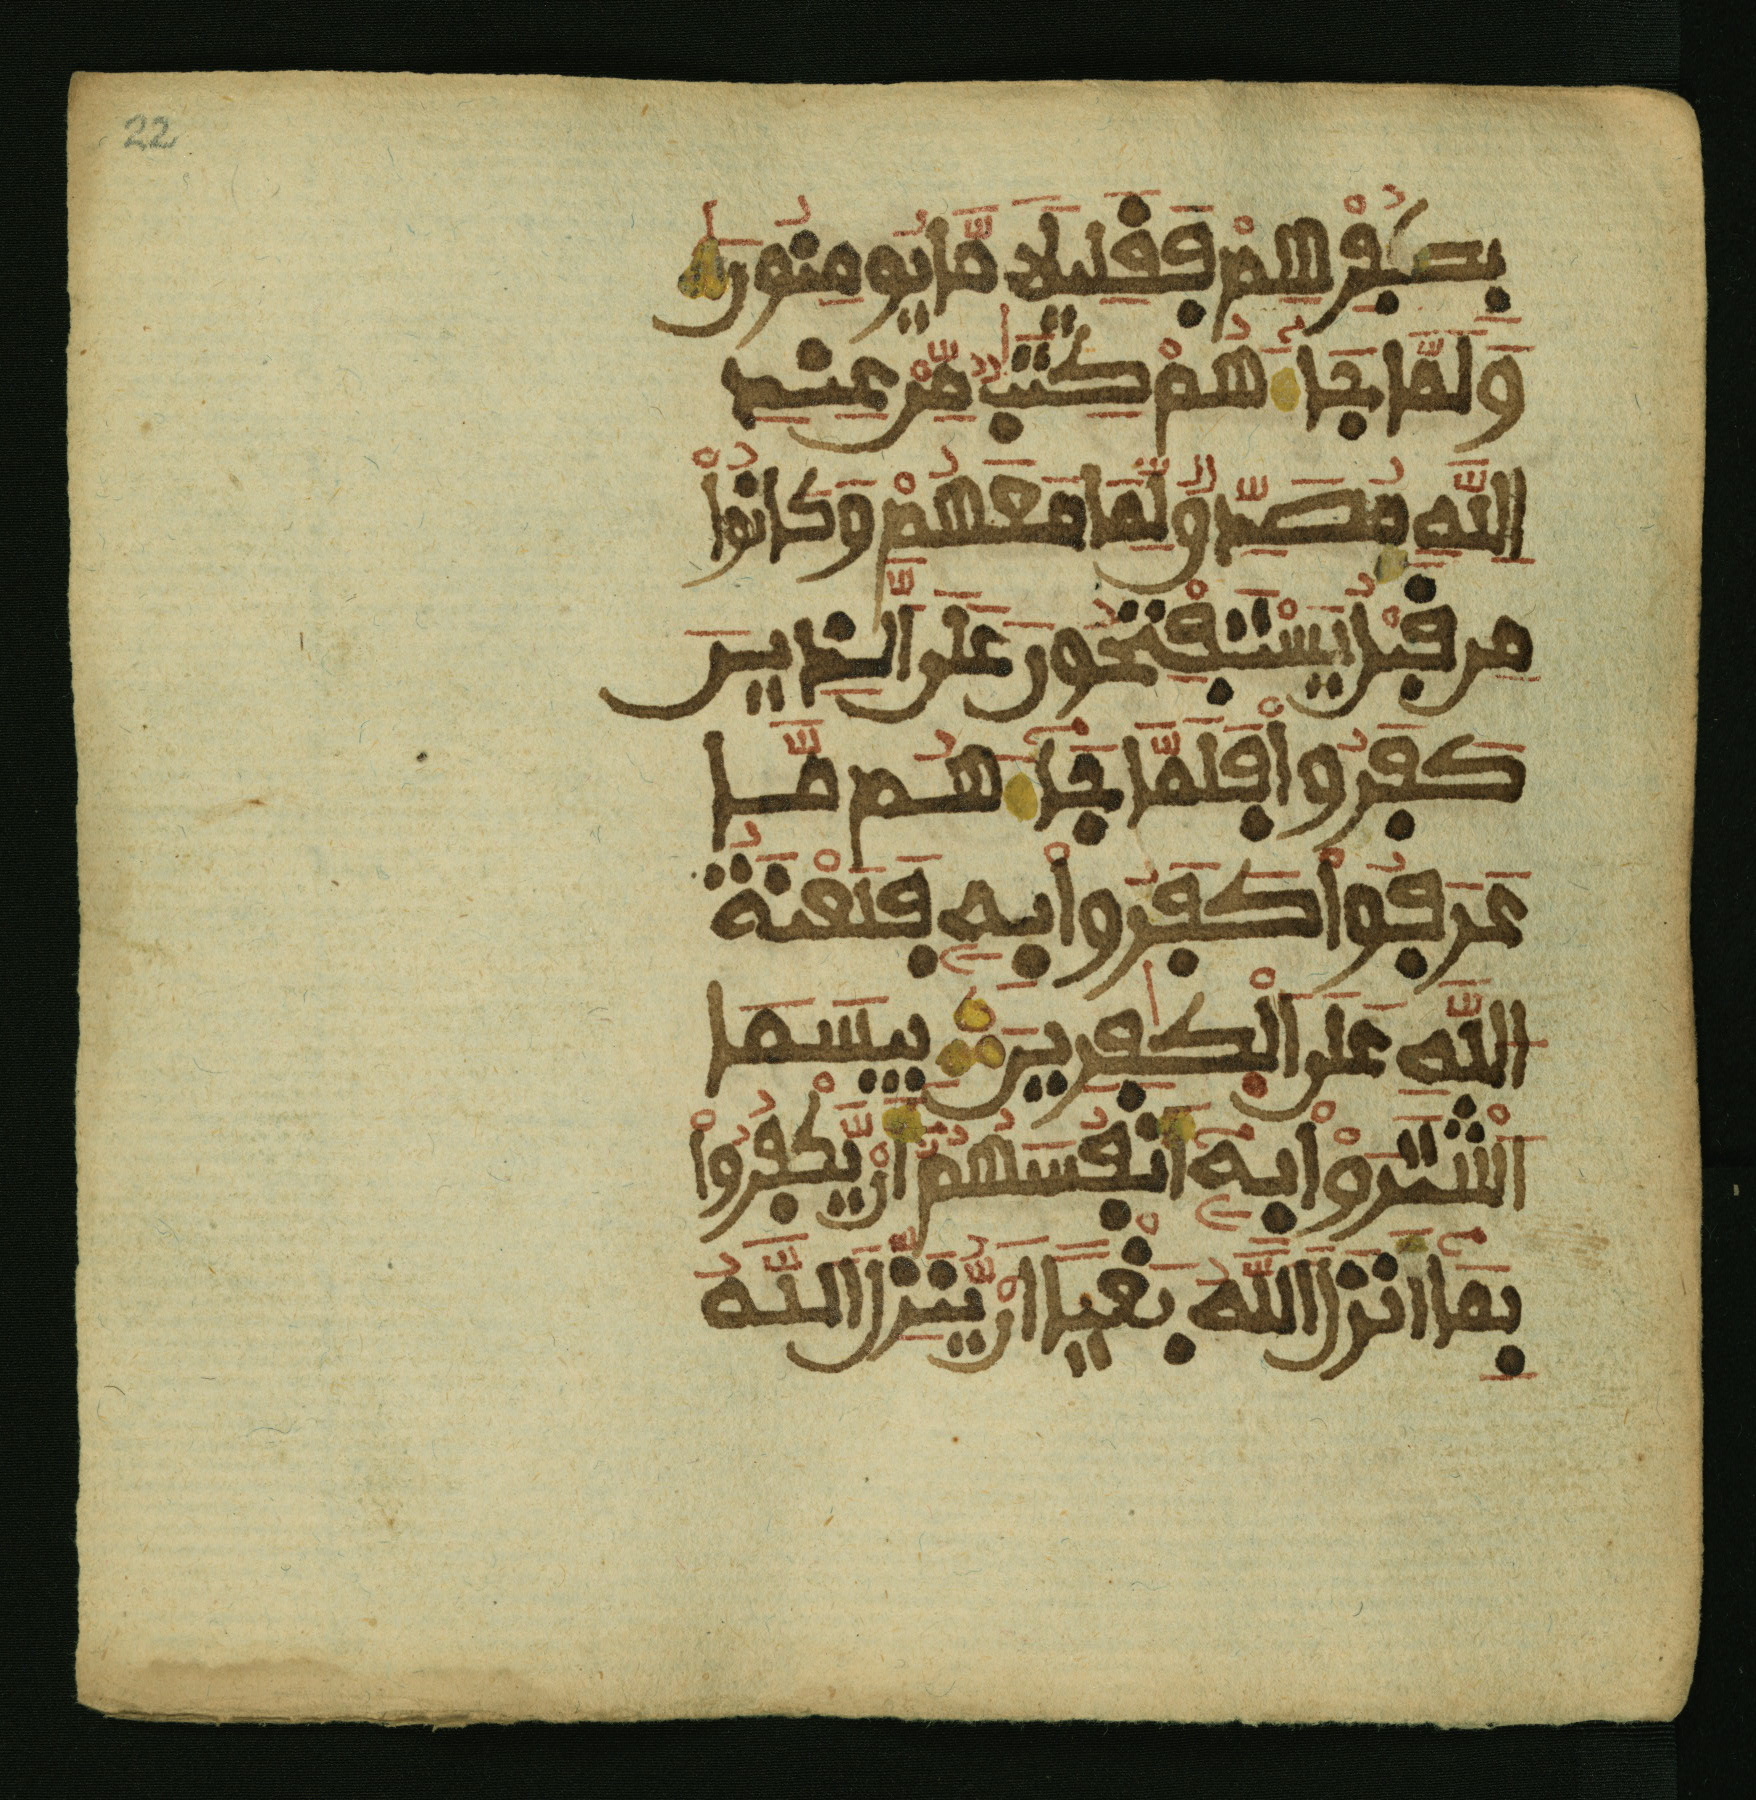 22
بِكُفْرِهِمْ فَقَلِيلًا مَّا يُومِنُونَ
وَلَمَّا جَآءَهُمْ كِتَٰبٌ مِّنْ عِندِ
اللَّهِ مُصَدِّقٌ لِّمَا مَعَهُمْ وَكَانُواْ
مِن قَبْلُ يَسْتَفْتِحُونَ عَلَى الَّذِينَ
كَفَرُواْ فَلَمَّا جَآءَهُم مَّا
عَرَفُواْ كَفَرُواْ بِهِ فَلَعْنَةُ
اللَّهِ عَلَى الْكَٰفِرِينَ بِيسَمَا
اشْتَرَوْاْ بِهِ أَنفُسَهُمُ أَنْ يَّكْفُرُواْ
بِمَا أَنزَلَ اللَّهُ بَغْيًا أَنْ يُّنَزِّلَ اللَّهُ